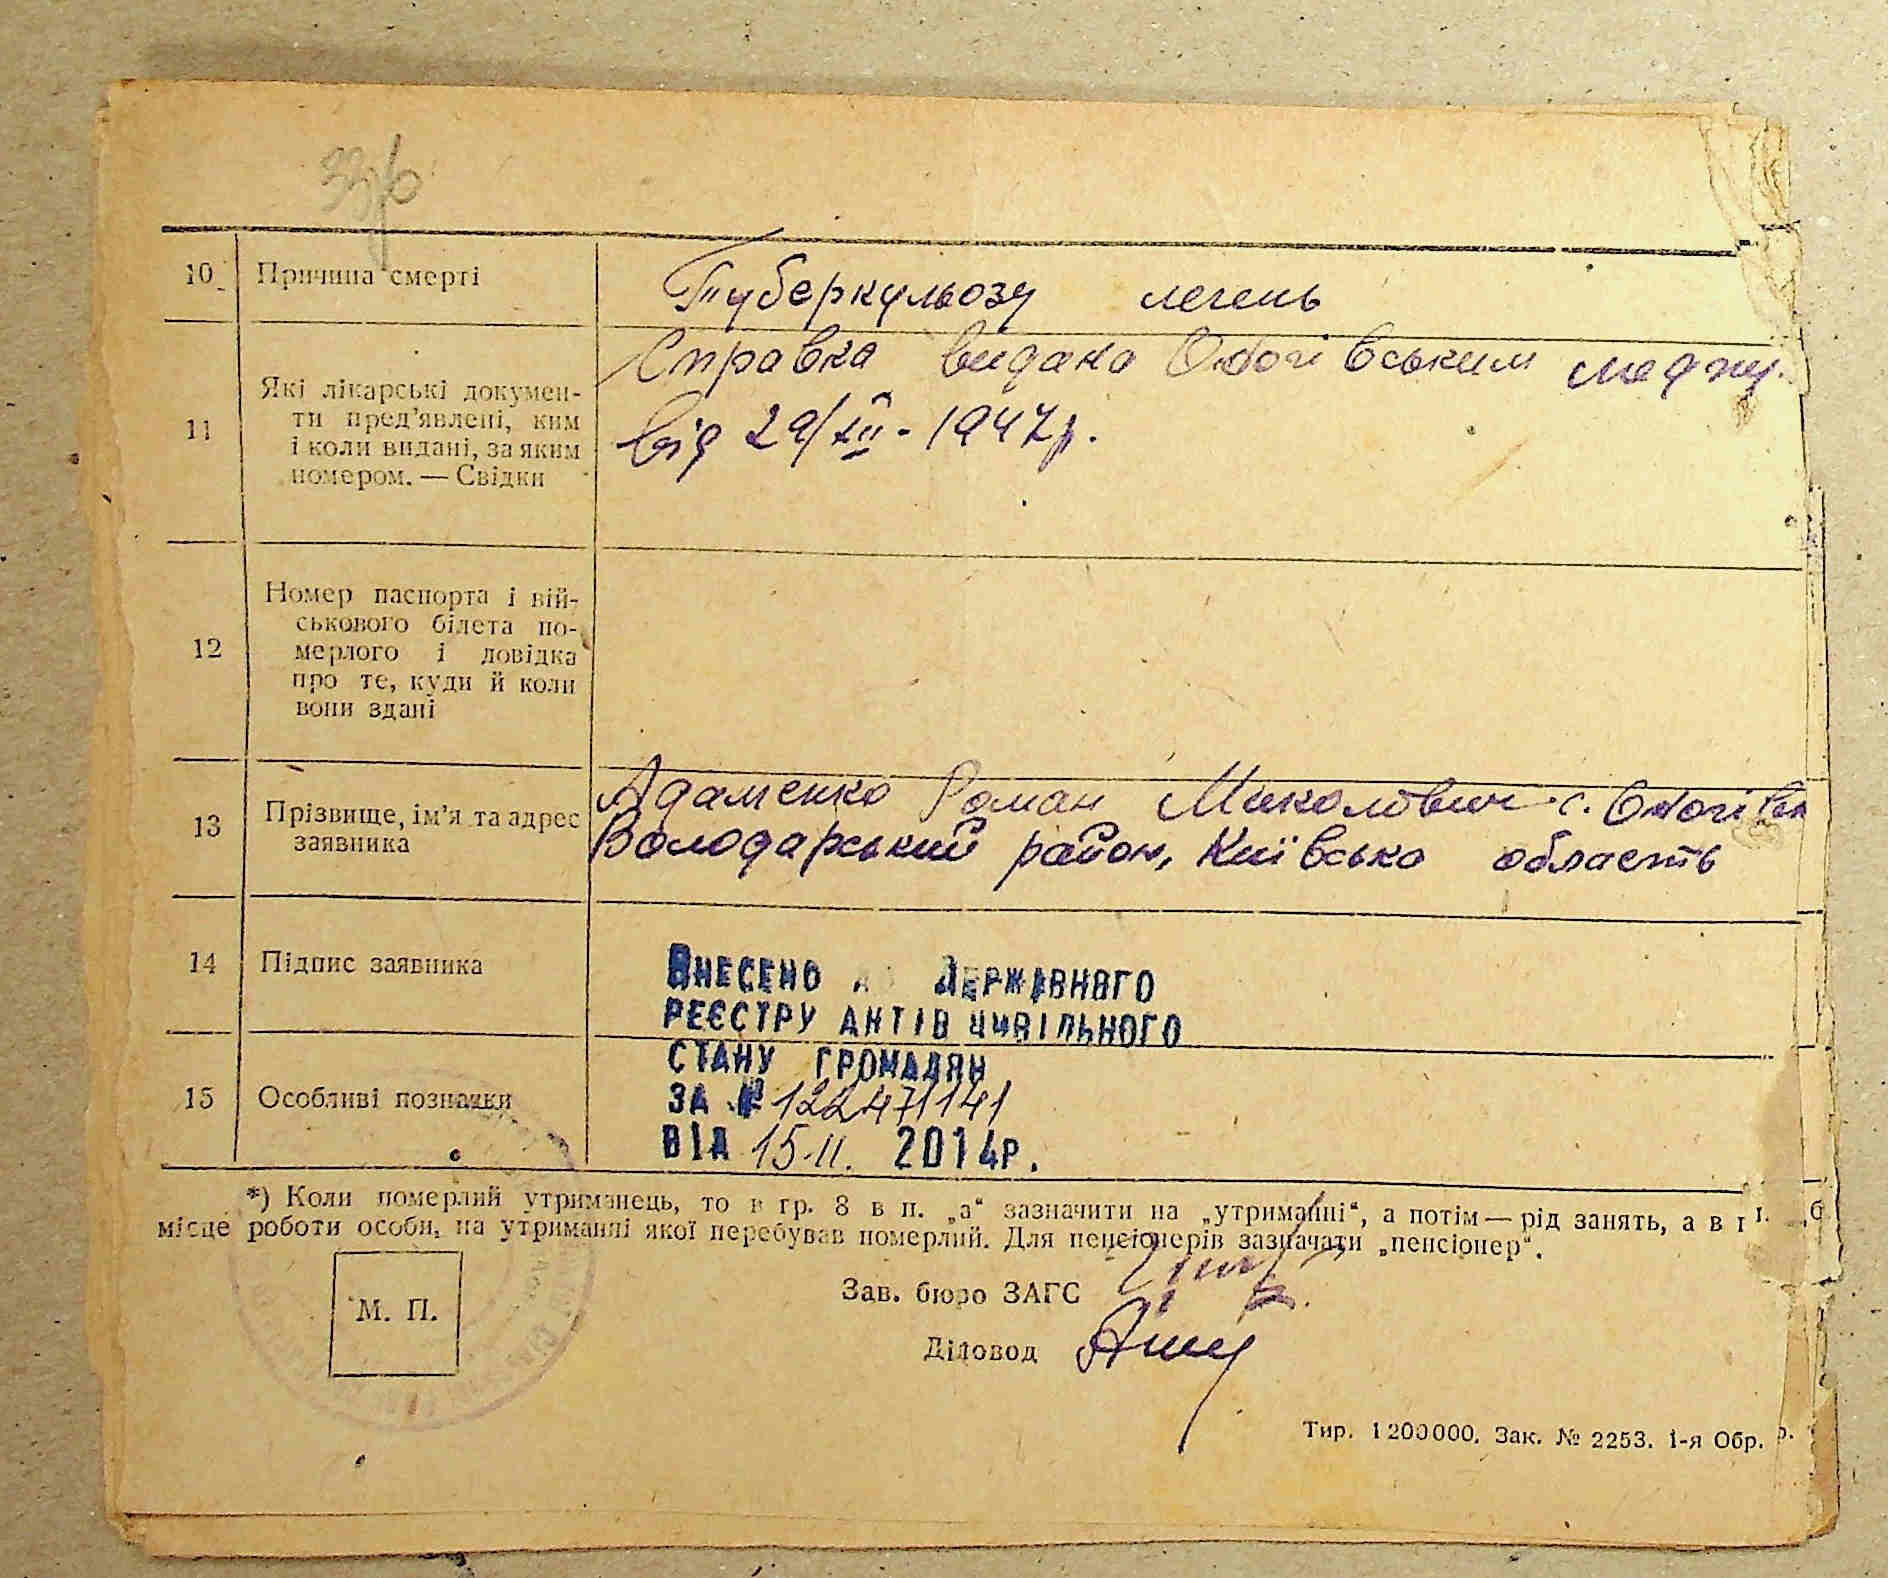 10
Причина смерті
Туберкульозу легень
11
Які лікарські докумен-
ти пред'явлені, ким
і коли видані, за яким
номером. — Свідки
Справка видана
від 29/XII - 1947р.
12
Номер паспорта і вій-
ськового білета по-
мерлого і довідка
про те, куди й коли
вони здані
13
Прізвище, ім'я та адрес
заявника
Адаменко Роман Миколович с.
Володарський район, Київсько область
14
Підпис заявника
ВНЕСЕНО ДО ДЕРЖАВНОГО
РЕЄСТРУ АКТІВ ЦИВІЛЬНОГО
СТАНУ ГРОМАДЯН
ЗА № 122471141
ВІД 15.11. 2014Р.
15
Особливі познаки
*) Коли померлий утриманець, то в гр. 8 в п. „а“ зазначити на „утриманні“, а потім — рід занять, а в
місце роботи особи, на утриманні якої перебував померлий. Для пенсіонерів зазначати „пенсіонер“.
М. П.
Зав. бюро ЗАГС
Діловод
Тир. 1200000. Зак. № 2253. 1-я Обр.